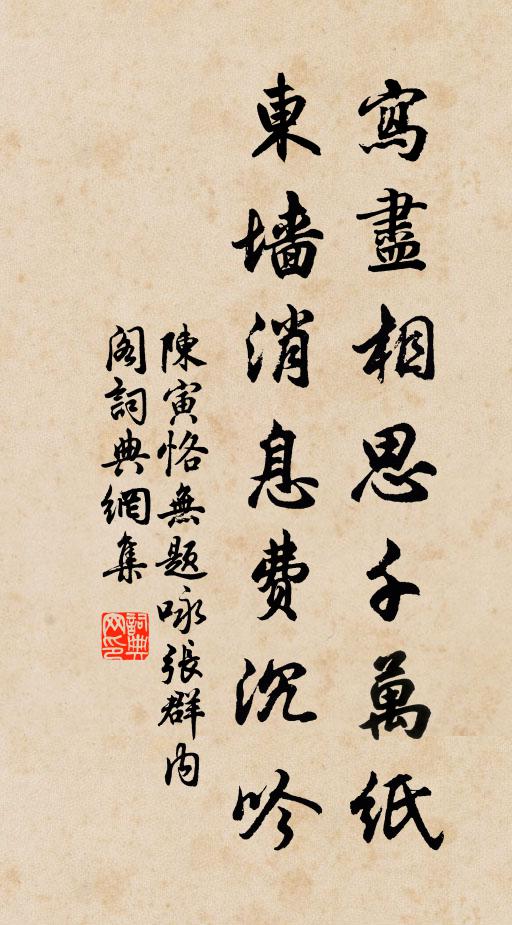 寫盡相思千萬紙
東墙消息費沉吟
陳寅恪無题咏張群内
阁詞典網集
詞典网印